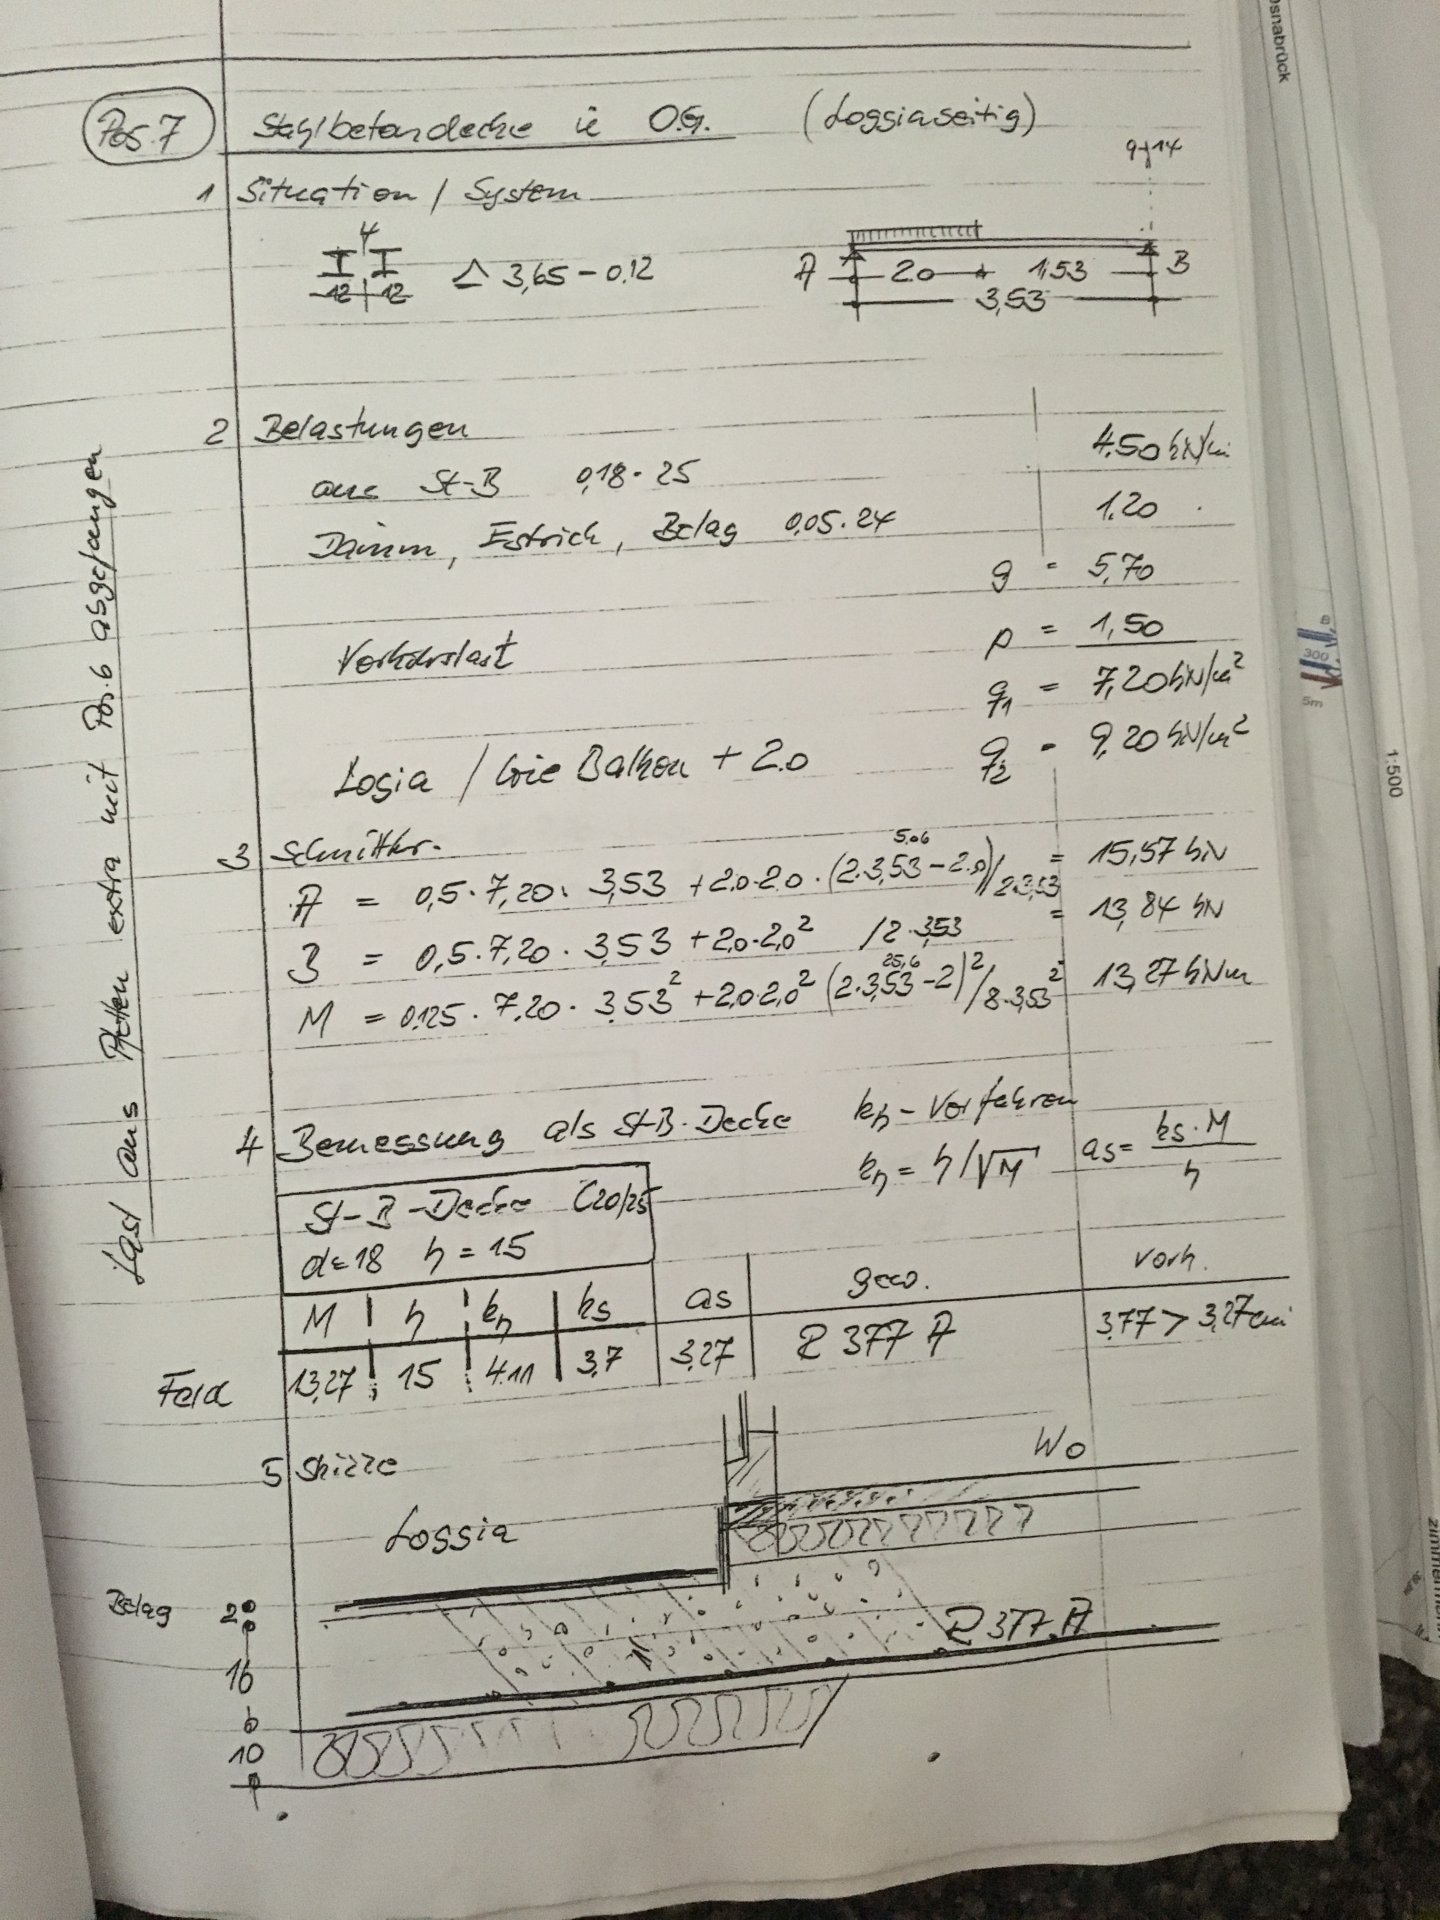 Pos. 7 Stahlbetondecke i OG. (Loggiaseitig)
9+14
1 Situation / System
4
12 12
≙ 3,65 - 0,12
A 2.0 1,53 B
3,53
2 Belastungen
aus St-B 0,18 · 25 4.50 kN/m
Dämm, Estrich, Belag 0,05 · 24 1.20
g = 5,70
Verkehrslast p = 1,50
q1 = 7,20 kN/m²
Logia / wie Balkon + 2.0 q2 = 9,20 kN/m²
3 Schnittkr.
5,06
A = 0,5 · 7,20 · 3,53 + 2.0 · 2.0 · (2 · 3,53 - 2.0) / 2·3,53 = 15,57 kN
B = 0,5 · 7,20 · 3,53 + 2,0 · 2,0² / 2 · 3,53 = 13,84 kN
25,6
M = 0,125 · 7,20 · 3,53² + 2,0 · 2,0² (2 · 3,53 - 2)² / 8 · 3,53² 13,27 kNm
4 Bemessung als St-B-Decke kh-Verfahren
kh = h/√M as = ks · M / h
St-B-Decke C20/25
d=18 h=15
M h kh ks as gew. vorh.
Feld 13,27 15 4.11 3,7 3,27 R 377 A 3,77 > 3,27 cm
5 Skizze
Wo
Loggia
Belag 2
R 377 A
16
10
Last aus Pfetten extra mit Pos. 6 abgefangen
Osnabrück
B
300
5m
1:500